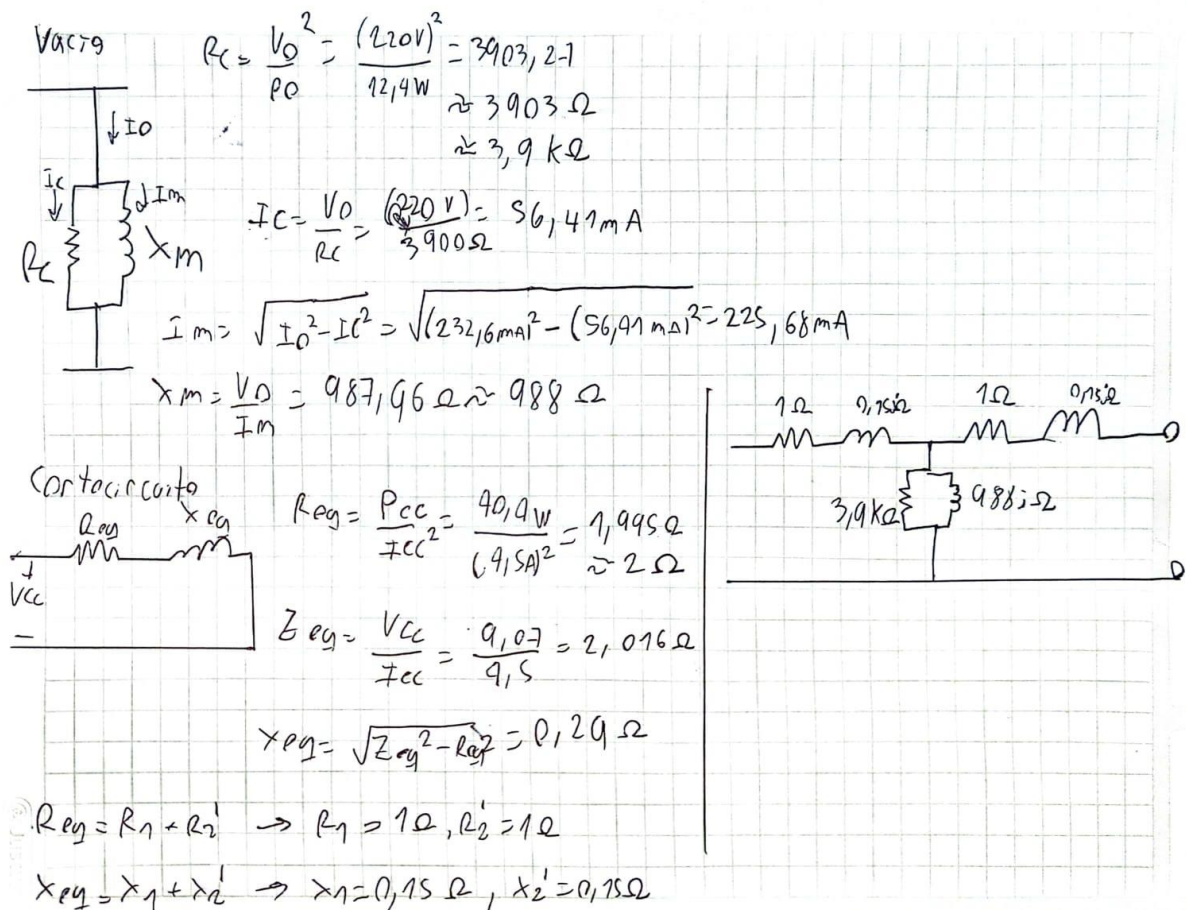 Vacío
Rc = V0² / P0 = (220V)² / 12,4W = 3903,2
≈ 3903 Ω
≈ 3,9 kΩ
↓I0
Ic ↓Im
Rc Xm
Ic = V0 / Rc = (220 V) / 3900Ω = 56,41mA
Im = √(I0² - Ic²) = √((232,6mA)² - (56,41 mA)²) = 225,68mA
Xm = V0 / Im = 987,96 Ω ≈ 988 Ω
1Ω 0,15jΩ 1Ω 0,15jΩ
3,9kΩ 988jΩ
Cortocircuito
Req Xeq
+
Vcc
-
Req = Pcc / Icc² = 40,4W / (4,5A)² = 1,995Ω
≈ 2 Ω
Zeq = Vcc / Icc = 9,07 / 4,5 = 2,016Ω
Xeq = √(Zeq² - Req²) = 0,29 Ω
Req = R1 + R2' → R1 = 1Ω, R2' = 1Ω
Xeq = X1 + X2' → X1 = 0,15 Ω, X2' = 0,15Ω